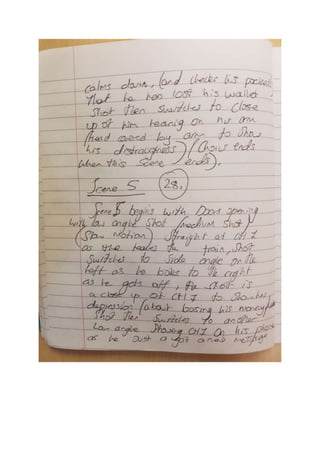 calms down, (and checks his pockets
that he has lost his wallet
shot then switches to close
up of him leaning on his arm
(head covered by arm to show
his distraughtness) (Chorus ends
when this scene ends).
Scene 5 (28.)
Scene 5 begins with Door opening
with low angle shot medium shot)
(Slow motion) straight at CH 1
as he leaves the train, shot
switches to side angle on the
left as he looks to the right
as he gets off, the shot is
a close up of CH1 to show his
depression (about losing his money)
Shot then switches to another
Low angle showing CH1 on his phone
as he just got a new message